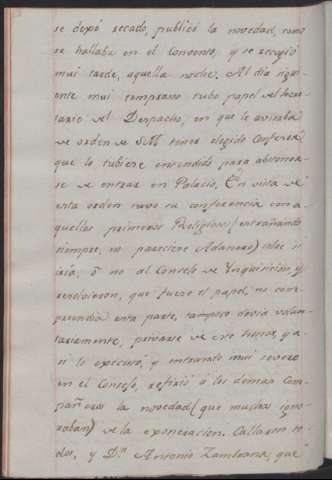 se dexó recado, publicó la novedad, como
se hallaba en el Convento, y se recogió
mui tarde, aquella noche. Al dia sigui-
ente mui temprano tubo papel del Secre-
tario del Despacho, en que le avisaba
de orden de S.M. tener elegido Confesor,
que lo tubiese entendido para abstener-
se de entrar en Palacio. En vista de
esta orden tuvo su conferencia con a-
quellos primeros Religiosos (entrañando
siempre, no pareciese Adanero) sobre si
iria, ó no al Consejo de Ynquisicion y
resolvieron, que fuese el papel, no com-
prendia esta parte, tampoco devia volun-
tariamente, privarse de este honor, y a-
si lo executó, y entrando mui severo
en el Consejo, refirió á los demas Com-
pañeros la novedad (que muchos igno-
raban) de la exoneracion. Callaron to-
dos, y Dn. Antonio Zambrana, que